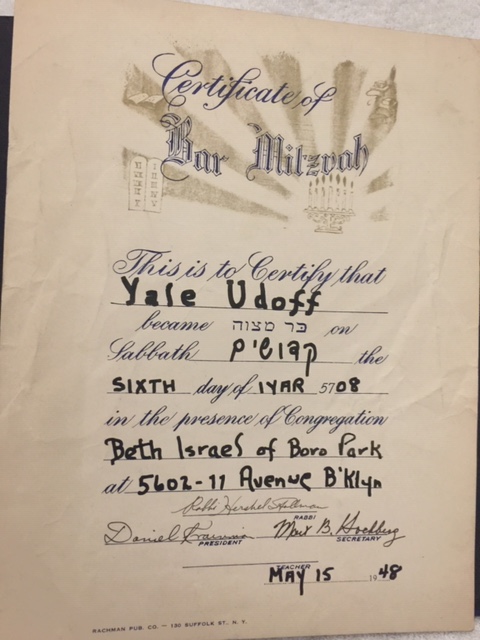 Certificate of
Bar Mitzvah
This is to Certify that
Yale Udoff
became בר מצוה on
Sabbath קדושים the
SIXTH day of IYAR 5708
in the presence of Congregation
Beth Israel of Boro Park
at 5602-11 Avenue B'Klyn
Rabbi Hershel
RABBI
Daniel
PRESIDENT
B. Hochberg
SECRETARY
TEACHER
MAY 15 1948
RACHMAN PUB. CO. — 130 SUFFOLK ST., N. Y.